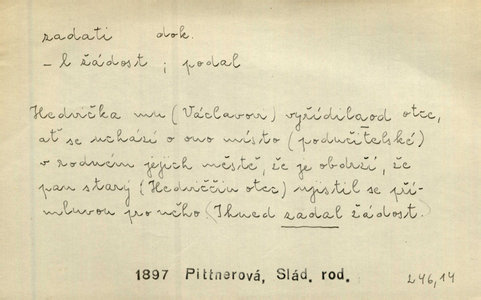 zadati dok.
– l žádost ; podal
Hedvička mu (Václavovi) vyřídila od otce,
ať se uchází o ono místo (podučitelské)
v rodném jejich městě, že je obdrží, že
pan starý (Hedviččin otec) ujistil se pří-
mluvou pro něho (Ihned zadal žádost.
1897 Pittnerová, Slád. rod.
246,14